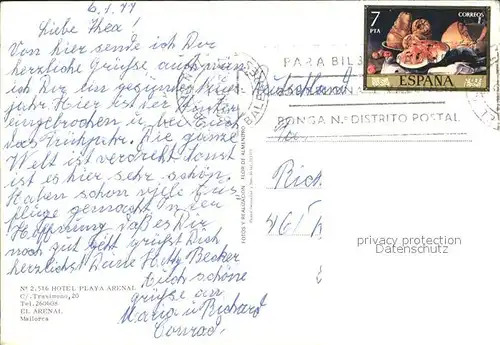 6.1.77
Liebe Thea!
Von hier sende ich Dir
herzliche Grüsse auch wün
ich Dir ein gesünderes
jahr. Hier ist der Winter
eingebrochen u bei Euch
das Frühjahr. Die ganze
Welt ist verdreht sonst
ist es hier sehr schön.
Haben schon viele Aus
flüge gemacht in der
Hoffnung daß es Dir
noch gut geht grüßt Dich
herzlichst Deine Hetty Becker
Auch schöne
grüße an
Maria u Richard
Conrad.
Nº 2.516 HOTEL PLAYA ARENAL
C/. Trasimeno, 20
Tel. 260608
EL ARENAL
Mallorca
FOTOS Y REALIZACION FLOR DE ALMENDRO
7
PTA
CORREOS
ESPAÑA
PARA BILB
PONGA N.º DISTRITO POSTAL
BALE
Deutschland
Rich
461
privacy protection
Datenschutz